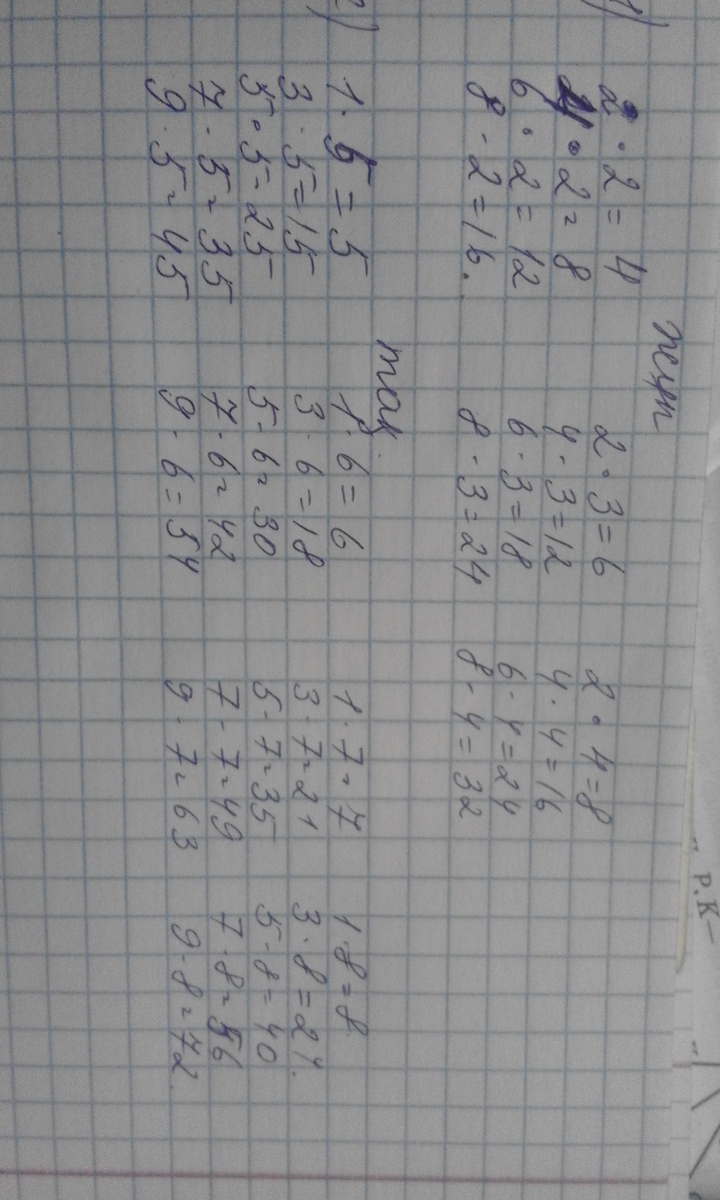 Р.К
1) жұп
2·2=4 2·3=6 2·4=8
4·2=8 4·3=12 4·4=16
6·2=12 6·3=18 6·4=24
8·2=16. 8·3=24 8·4=32
2) тақ.
1·5=5 1·6=6 1·7=7 1·8=8
3·5=15 3·6=18 3·7=21 3·8=24.
5·5=25 5·6=30 5·7=35 5·8=40
7·5=35 7·6=42 7·7=49 7·8=56
9·5=45 9·6=54 9·7=63 9·8=72.